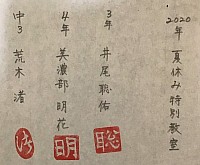 2020年 夏休み特別教室
3年 井尾聡佑
聡
4年 美濃部明花
明
中3 荒木渚
渚